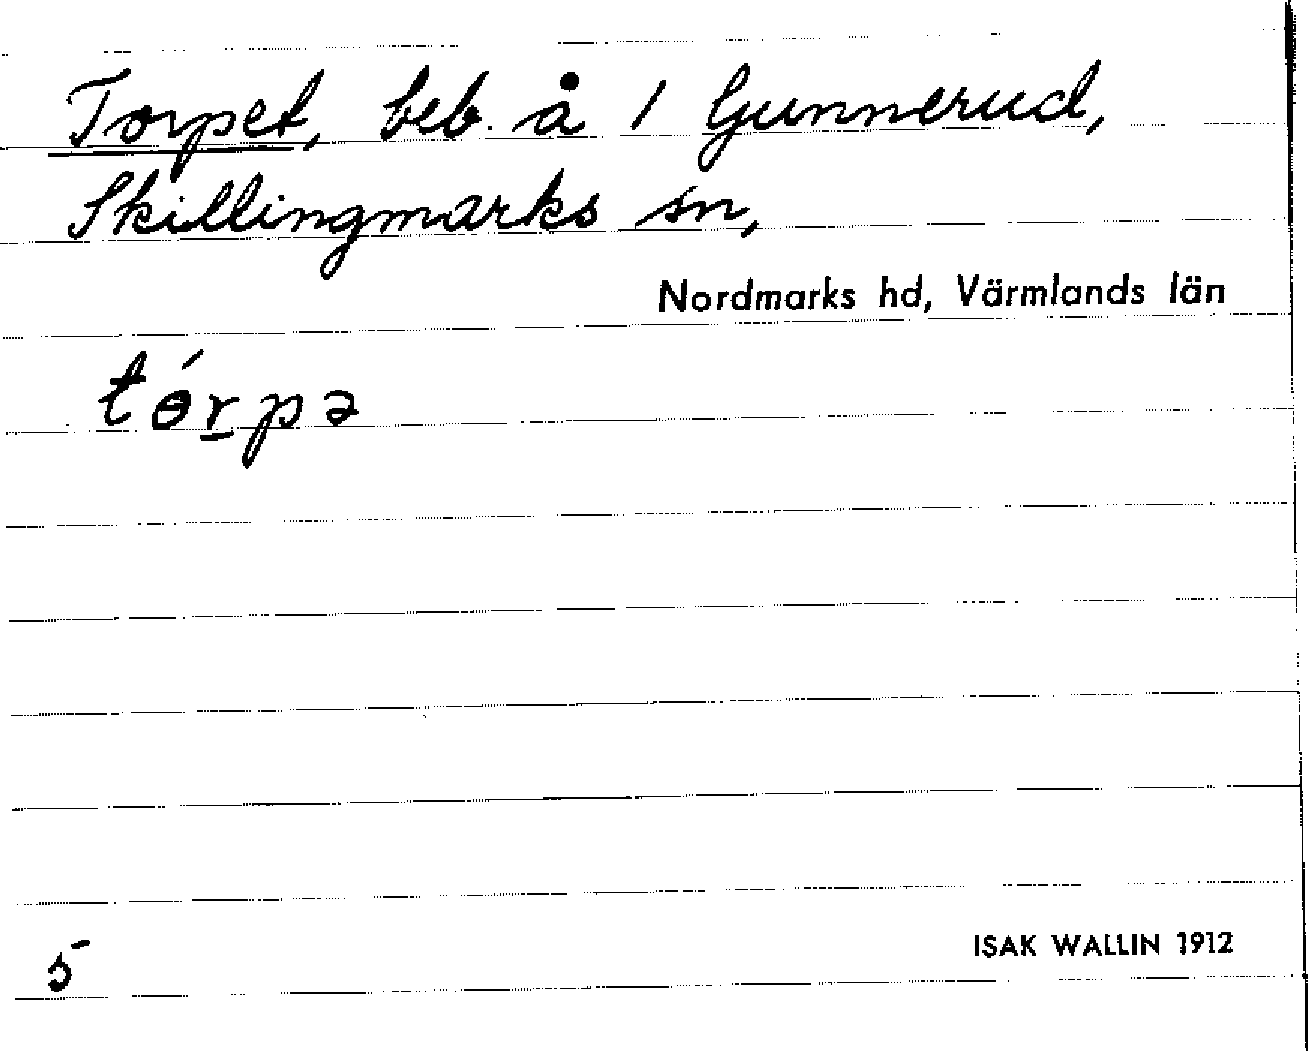 Torpet, beb. å 1 Gunnerud,
Skillingmarks sn,
Nordmarks hd, Värmlands län
tɵ́r̲pə
5
ISAK WALLIN 1912